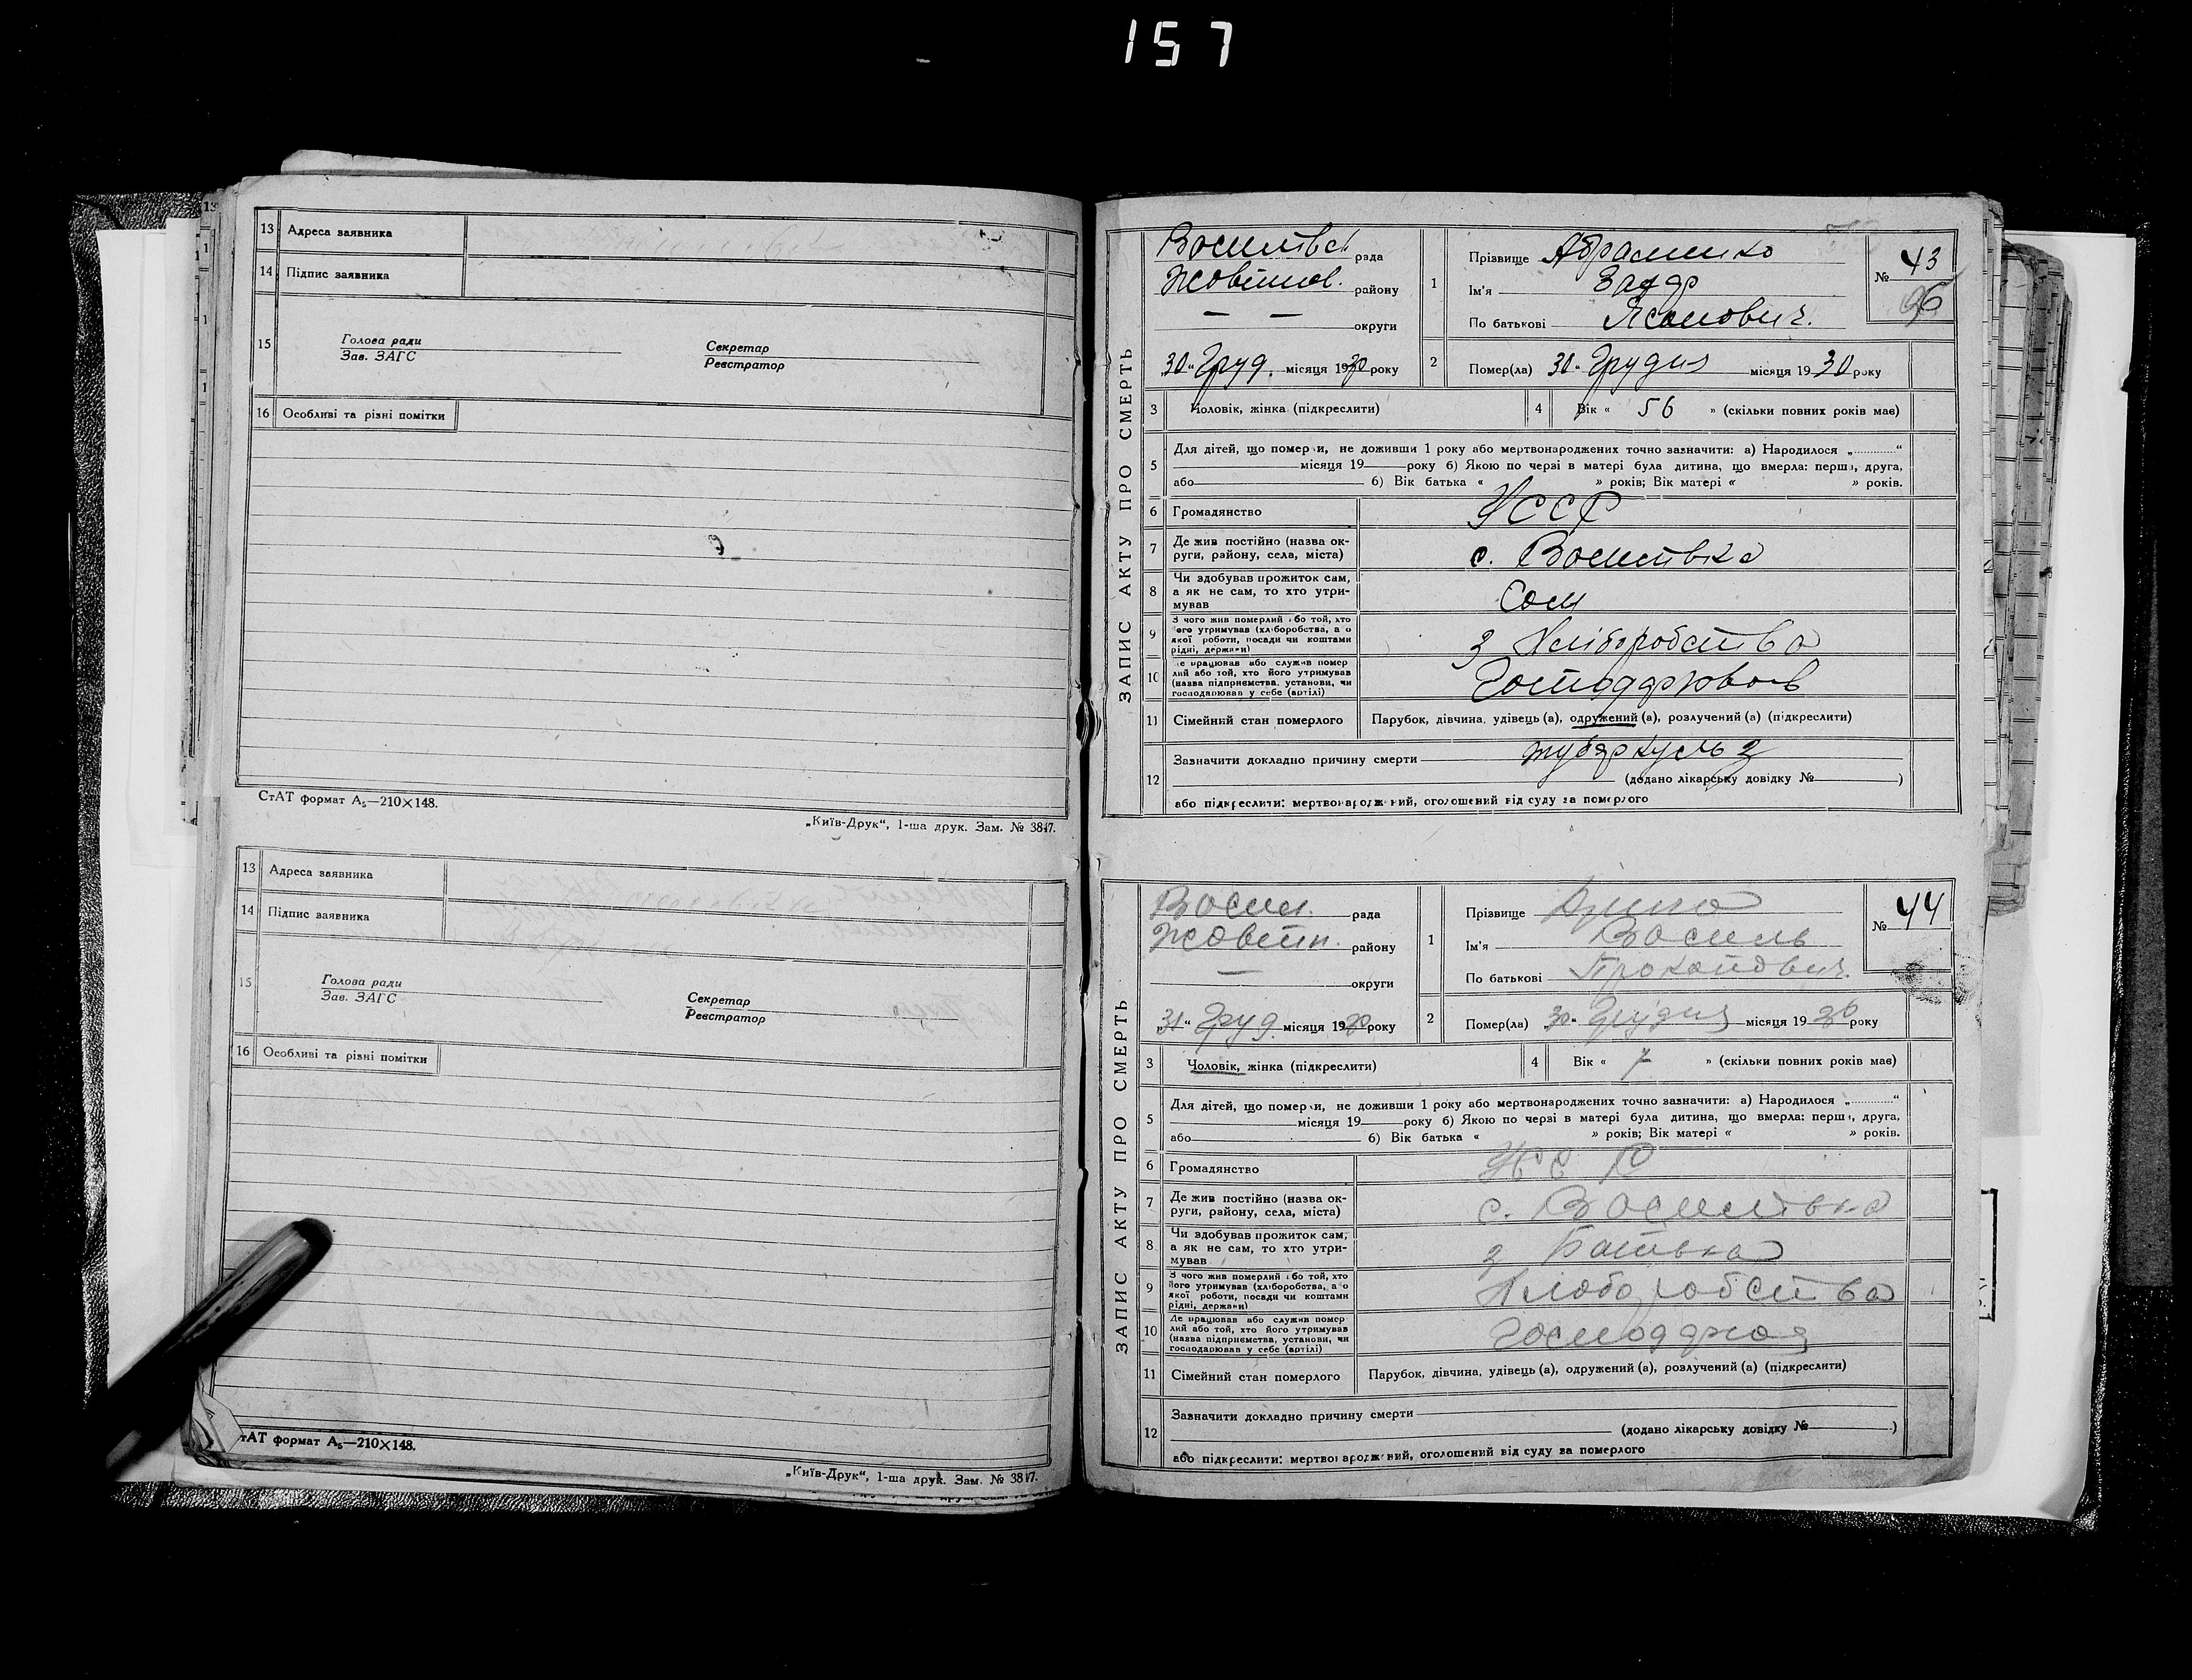 157
13 Адреса заявника
14 Підпис заявника
15 Голова ради
Зав. ЗАГС
Секретар
Реєстратор
16 Особливі та різні помітки
СтАТ формат А₅—210×148.
„Київ-Друк“, 1-ша друк. Зам. № 3847.
13 Адреса заявника
14 Підпис заявника
15 Голова ради
Зав. ЗАГС
Секретар
Реєстратор
16 Особливі та різні помітки
тАТ формат А₅—210×148.
„Київ-Друк“, 1-ша друк. Зам. № 3847.
ЗАПИС АКТУ ПРО СМЕРТЬ
рада
Жовтнев. району
— — округи
30 “ Груд. місяця 1930 року
1 Прізвище Абраменко
Ім'я
По батькові
№ 43
96
2 Помер(ла) 30 “ Грудня місяця 1930 року
3 Чоловік, жінка (підкреслити)
4 Вік « 56 » (скільки повних років має)
5 Для дітей, що померли, не доживши 1 року або мертвонароджених точно зазначити: а) Народилося „..........“
місяця 19 року б) Якою по черзі в матері була дитина, що вмерла: перша, друга,
або б) Вік батька « » років; Вік матері « » років.
6 Громадянство УССР
7 Де жив постійно (назва округи, району, села, міста) с. Василівка
8 Чи здобував прожиток сам, а як не сам, то хто утримував Сам
9 З чого жив померлий або той, хто його утримував (хліборобства, або якої роботи, посади чи коштами рідні, держави) З Хліборобства
10 Де працював або служив померлий або той, хто його утримував (назва підприємства, установи, чи господарював у себе (артілі)
11 Сімейний стан померлого Парубок, дівчина, удівець (а), одружений (а), розлучений (а) (підкреслити)
12 Зазначити докладно причину смерти туберкульоз
(додано лікарську довідку № )
або підкреслити: мертвонароджений, оголошений від суду за померлого
ЗАПИС АКТУ ПРО СМЕРТЬ
Васил. рада
Жовтн. району
— округи
31 “ Груд. місяця 1930 року
1 Прізвище
Ім'я Василь
По батькові Прокопович.
№ 44
2 Помер(ла) 30 “ Грудня місяця 1930 року
3 Чоловік, жінка (підкреслити)
4 Вік « 7 » (скільки повних років має)
5 Для дітей, що померли, не доживши 1 року або мертвонароджених точно зазначити: а) Народилося „..........“
місяця 19 року б) Якою по черзі в матері була дитина, що вмерла: перша, друга,
або б) Вік батька « » років; Вік матері « » років.
6 Громадянство УССР
7 Де жив постійно (назва округи, району, села, міста) с. Василівка
8 Чи здобував прожиток сам, а як не сам, то хто утримував з Батька
9 З чого жив померлий або той, хто його утримував (хліборобства, або якої роботи, посади чи коштами рідні, держави)
10 Де працював або служив померлий або той, хто його утримував (назва підприємства, установи, чи господарював у себе (артілі)
11 Сімейний стан померлого Парубок, дівчина, удівець (а), одружений (а), розлучений (а) (підкреслити)
12 Зазначити докладно причину смерти
(додано лікарську довідку № )
або підкреслити: мертвонароджений, оголошений від суду за померлого